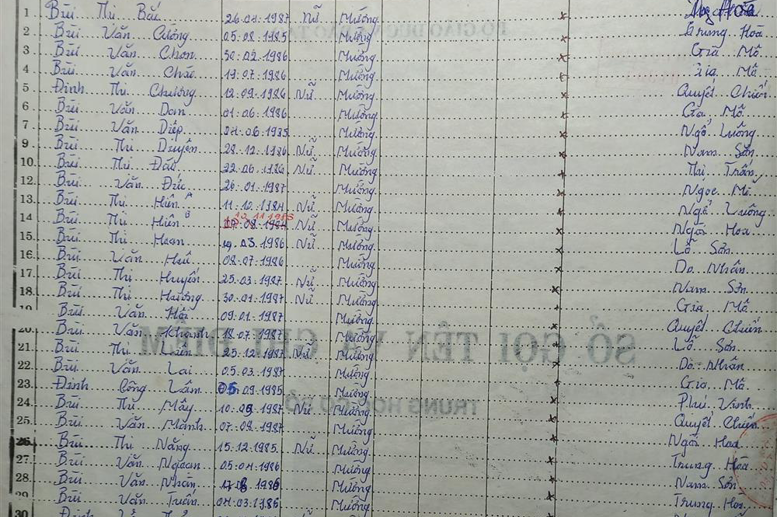 1 Bùi Thị Bắc 26.01.1987 Nữ Mường x Ngọc Hoà
2 Bùi Văn Cường 05.08.1985 Mường x Trung Hoà
3 Bùi Văn Chon 30.02.1986 Mường x Gia Mô
4 Bùi Văn 19.07.1986 Mường x Gia Mô
5 Đinh Thị Chương 12.09.1986 Nữ Mường x Quyết Chiến
6 Bùi Văn Dan 01.06.1986 Mường x Gia Mô
7 Bùi Văn Diệp 06.1985 Mường x Ngổ Luông
9 Bùi Thị Duyên 28.12.1986 Nữ Mường x Nam Sơn
10 Bùi Thị 22.06.1986 Nữ Mường x Thị Trấn
12 Bùi Văn Đức 26.01.1987 Mường x Ngọc Mĩ
13 Bùi Thị Hiên A 11.10.1984 Nữ Mường x Ngổ Luông
14 Bùi Thị Hiên B 08.1984 Nữ Mường x Ngòi Hoa
15 Bùi Thị Hoan 03.1986 Nữ Mường x Lỗ Sơn
16 Bùi Văn Huê 08.07.1986 Mường x Do Nhân
17 Bùi Thị Huyền 25.03.1987 Nữ Mường x Nam Sơn
18 Bùi Thị Hương 30.01.1987 Nữ Mường x Gia Mô
19 Bùi Văn Hội 09.01.1987 Mường x Quyết Chiến
20 Bùi Văn Khánh 18.07.1987 Mường x Lỗ Sơn
21 Bùi Thị 25.12.1987 Nữ Mường x Do Nhân
22 Bùi Văn Lai 05.03.1987 Mường x Gia Mô
23 Đinh Công Lâm 05.09.1985 Mường x Phú Vinh
24 Bùi Thị Mây 10.05.1987 Nữ Mường x Quyết Chiến
25 Bùi Văn Mành 07.08.1987 Mường x Ngòi Hoa
26 Bùi Thị Nặng 15.12.1985 Nữ Mường x Trung Hoà
27 Bùi Văn Ngoan 05.04.1986 Mường x Nam Sơn
28 Bùi Văn Nhân 1986 Mường x Trung Hoà
29 Bùi Văn Tuấn 03.1986 Mường
30 Đinh
SỔ GỌI TÊN VÀ GHI ĐIỂM
TRUNG HỌC CƠ SỞ